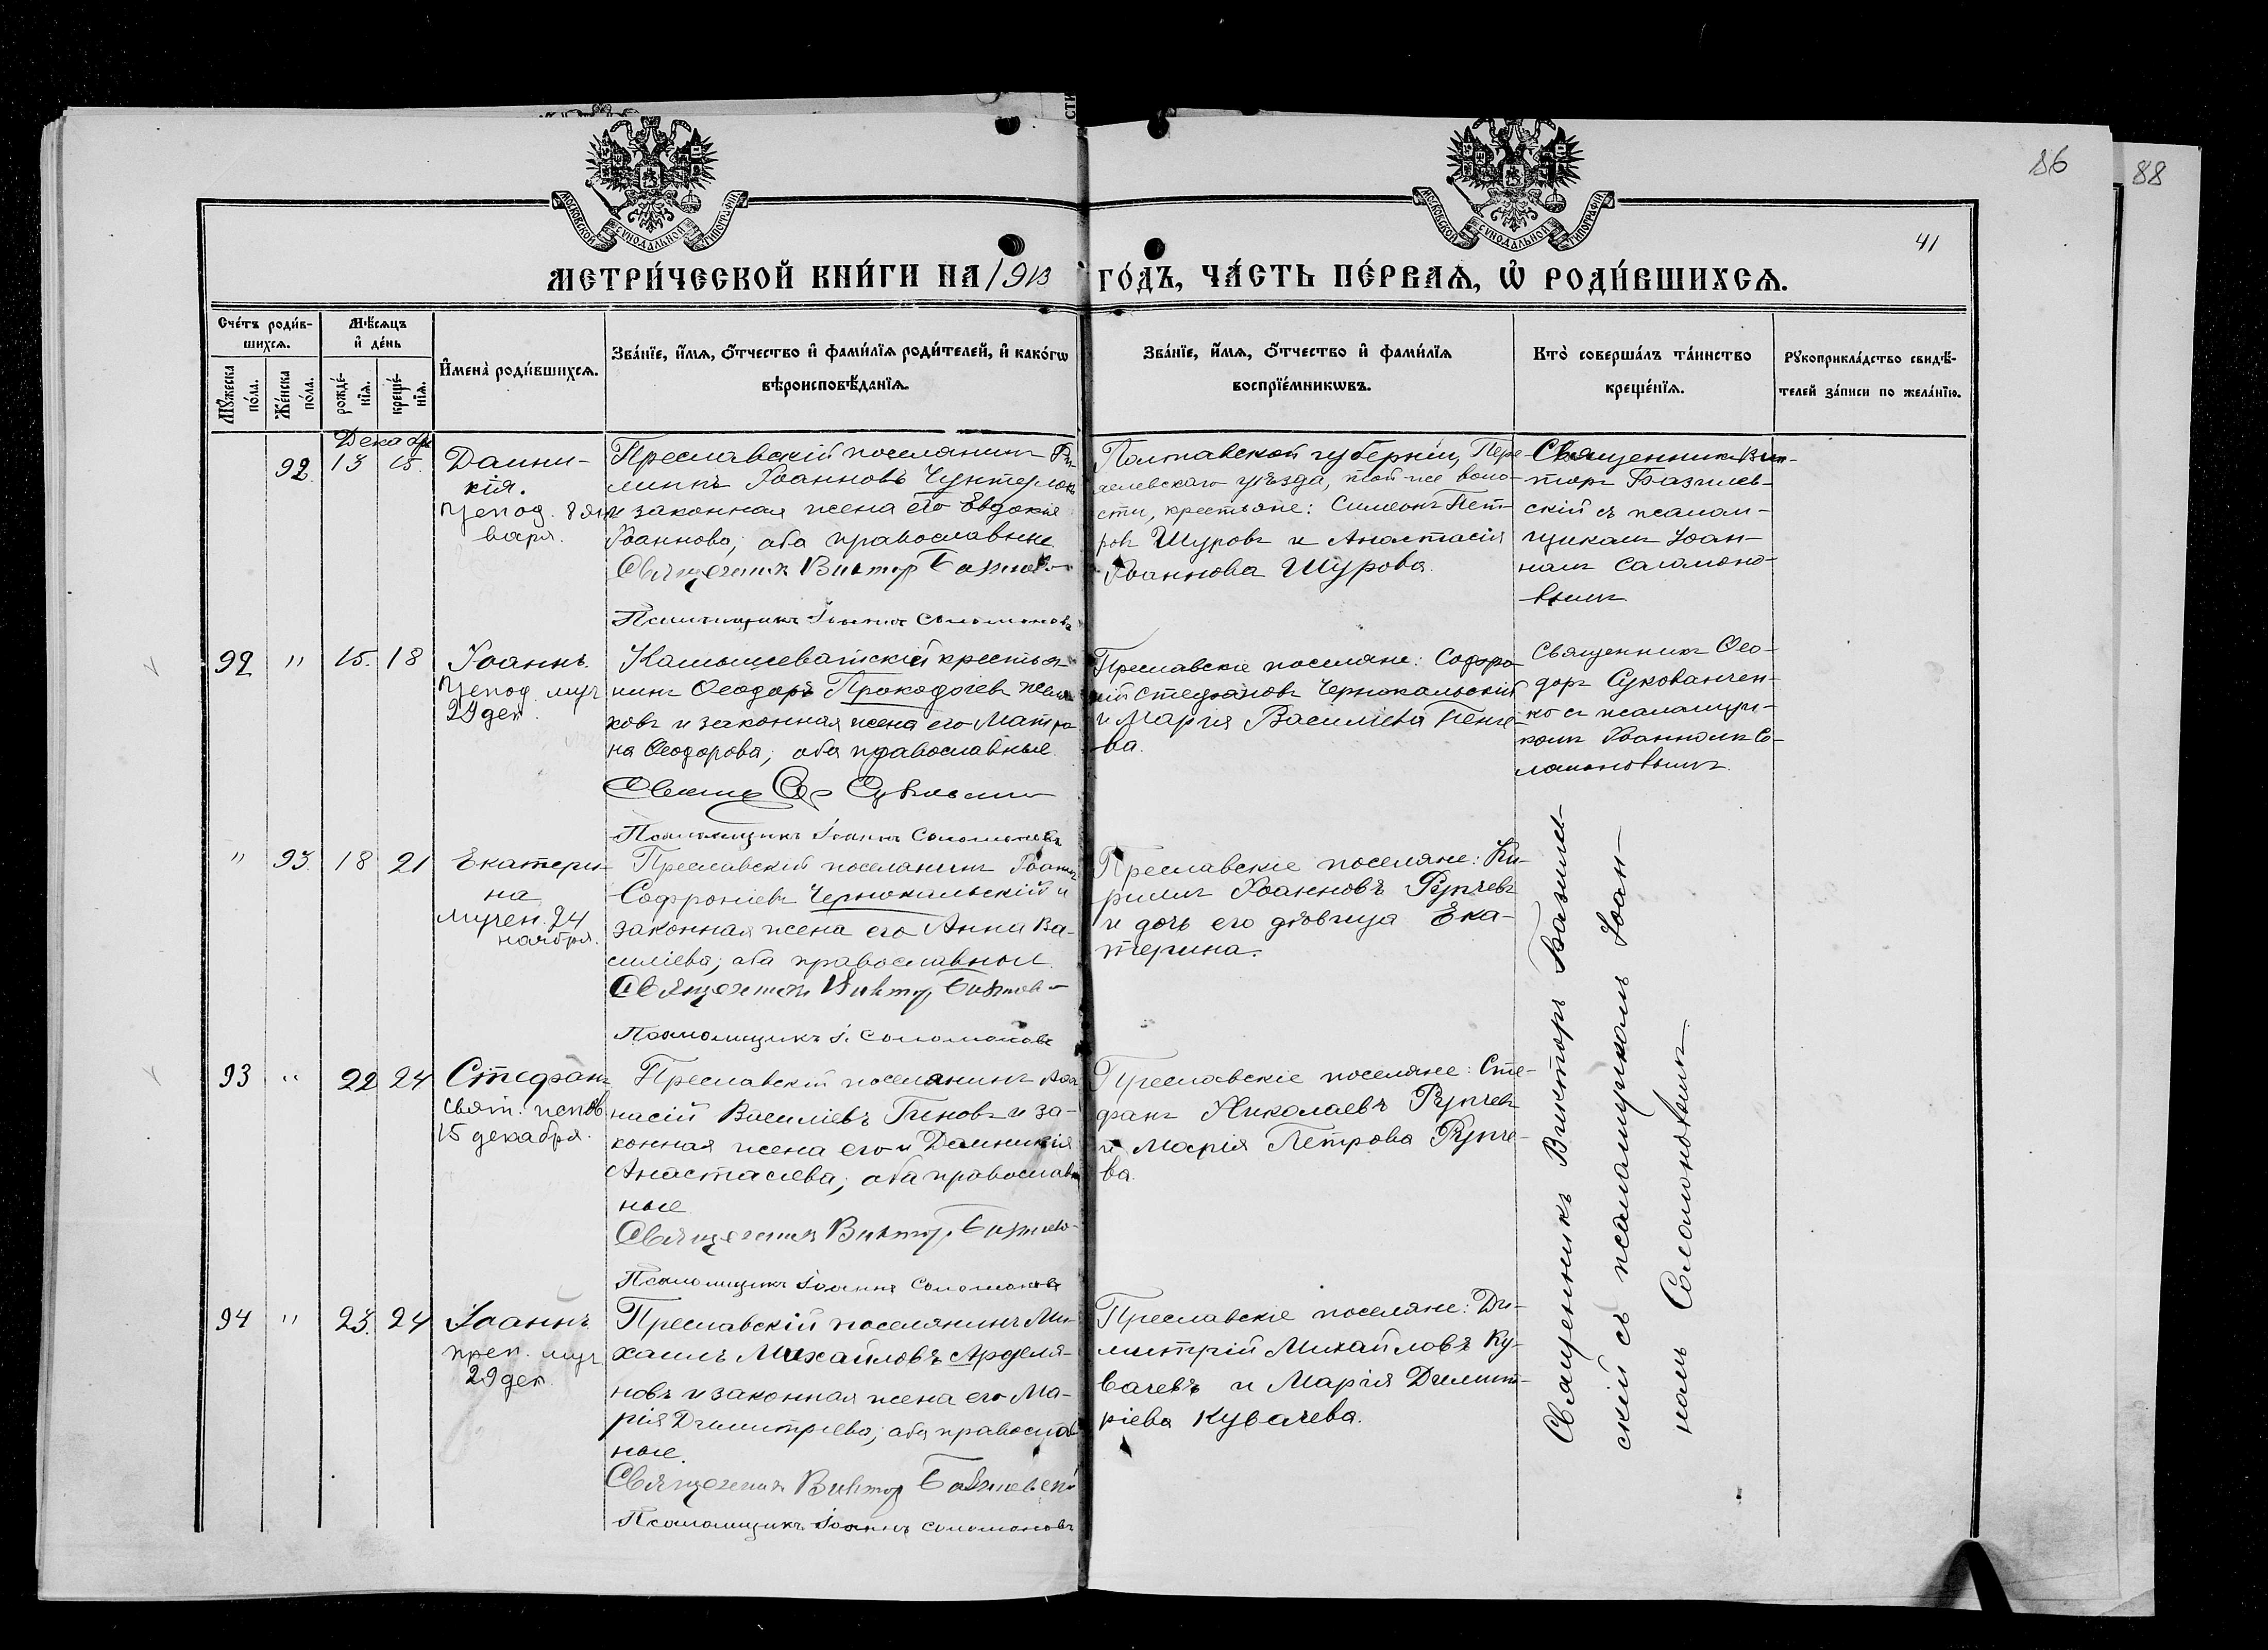 86
88
41
МОСКОВСКОЙ СУНОДАЛЬНОЙ ТИПОГРАФІИ
МОСКОВСКОЙ СУНОДАЛЬНОЙ ТИПОГРАФІИ
МЕТРИ́ЧЕСКОЙ КНИ́ГИ НА 1913 ГО́ДЪ, ЧА́СТЬ ПЕ́РВАѦ, Ѡ РОДИ́ВШИХСѦ.
Сче́тъ роди́в-
шихсѧ.
Мужеска по́ла.
Же́нска по́ла.
Мѣ́сѧцъ
и де́нь
рожде́-
нїѧ.
креще́-
нїѧ.
И҆мена̀ роди́вшихсѧ.
Зва́нїе, и҆́мѧ, ѻ҆́тчество и҆ фами́лїѧ роди́телей, и҆ како́гѡ
вѣроисповѣ́данїѧ.
Зва́нїе, и҆́мѧ, ѻ҆́тчество и҆ фами́лїѧ
воспрїе́мникѡвъ.
Кто̀ соверша́лъ та́инство
креще́нїѧ.
Рꙋкоприкла́дство свидѣ́-
телей за́писи по жела́нїю.
Декабр
92 13 15.
Домни-
кія.
8 ян
варя.
Преславскій поселянинъ Фи-
липпъ Іоанновъ
и законная жена его Евдокія
Іоаннова; оба православные
Священник Виктор Базилев
Псаломщикъ Іоаннъ Соломоновъ
Полтавской губерніи, Пере-
уѣзда, той же воло-
сти, крестьяне: Симеонъ Пет-
ровъ Шуровъ и Анастасія
Іоаннова Шурова.
Священникъ Вик-
торъ Базилев-
скій съ псалом-
щикомъ Іоан-
номъ Саламоно-
вымъ
92 " 15. 18
Іоаннъ.
муч
29 дек.
Камышеватскій крестья-
нинъ Ѳеодоръ Прокофіевъ
ховъ и законная жена его Матро-
на Ѳеодорова; оба православные.
Псаломщикъ Іоаннъ Соломоновъ
Преславскіе поселяне: Софро-
ній Стефановъ Чернокальскій
и Марія Василіева Пенче-
ва.
Священникъ Ѳео-
доръ Сукованчен-
ко съ псаломщи-
комъ Іоанномъ Со-
ломоновымъ.
" 93 18 21
Екатери-
на
мучен. 24
ноября.
Преславскій поселянинъ Іоаннъ
Софроніевъ Чернокальскій и
законная жена его Анна Ва-
силіева; оба православные
Священник Виктор Базилев
Псаломщикъ І. Соломоновъ
Преславскіе поселяне: Ки-
риллъ Іоанновъ Рупчевъ
и дочь его дѣвица Ека-
терина.
93 " 22 24
Стефанъ
свят. испов.
15 декабря.
Преславскій поселянинъ Аѳа-
насій Василіевъ Геновъ и за-
конная жена его Домникія
Анастасіева; оба православ-
ные
Священник Виктор Базилев
Псаломщикъ Іоаннъ Соломоновъ
Преславскіе поселяне: Сте-
фанъ Николаевъ Рупчевъ
и Марія Петрова Рупче-
ва.
94 " 23. 24
Іоаннъ
преп. муч.
29 дек.
Преславскій поселянинъ Ми-
хаилъ Михайловъ Арделя-
новъ и законная жена его Ма-
рія Димитріева; оба православ
ные.
Священник Виктор Базилевскій
Псаломщикъ Іоаннъ Соломоновъ
Преславскіе поселяне: Ди-
митрій Михайловъ Ку-
вачевъ и Марія Димит-
ріева Кувачева.
Священникъ Викторъ Базилев-
скій съ псаломщикомъ Іоан-
номъ Соломоновымъ